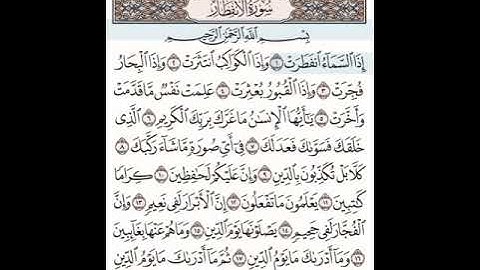 سُورَةُ الانفِطَارِ
بِسْمِ اللَّهِ الرَّحْمَٰنِ الرَّحِيمِ
إِذَا السَّمَاءُ انفَطَرَتْ ١ وَإِذَا الْكَوَاكِبُ انتَثَرَتْ ٢ وَإِذَا الْبِحَارُ
فُجِّرَتْ ٣ وَإِذَا الْقُبُورُ بُعْثِرَتْ ٤ عَلِمَتْ نَفْسٌ مَّا قَدَّمَتْ
وَأَخَّرَتْ ٥ يَا أَيُّهَا الْإِنسَانُ مَا غَرَّكَ بِرَبِّكَ الْكَرِيمِ ٦ الَّذِي
خَلَقَكَ فَسَوَّاكَ فَعَدَلَكَ ٧ فِي أَيِّ صُورَةٍ مَّا شَاءَ رَكَّبَكَ ٨
كَلَّا بَلْ تُكَذِّبُونَ بِالدِّينِ ٩ وَإِنَّ عَلَيْكُمْ لَحَافِظِينَ ١٠ كِرَامًا
كَاتِبِينَ ١١ يَعْلَمُونَ مَا تَفْعَلُونَ ١٢ إِنَّ الْأَبْرَارَ لَفِي نَعِيمٍ ١٣ وَإِنَّ
الْفُجَّارَ لَفِي جَحِيمٍ ١٤ يَصْلَوْنَهَا يَوْمَ الدِّينِ ١٥ وَمَا هُمْ عَنْهَا بِغَائِبِينَ
١٦ وَمَا أَدْرَاكَ مَا يَوْمُ الدِّينِ ١٧ ثُمَّ مَا أَدْرَاكَ مَا يَوْمُ الدِّينِ